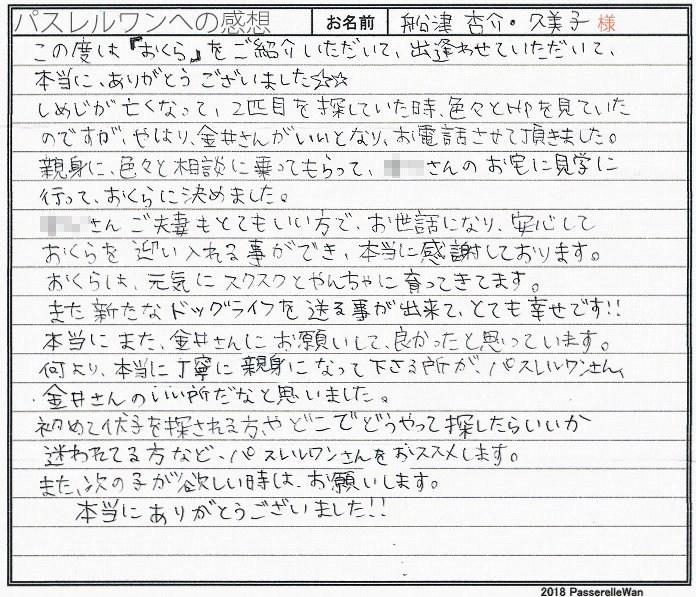 パスレルワンへの感想 お名前 船津 杏介・久美子 様
この度は『おくら』をご紹介いただいて、出逢わせていただいて、
本当に、ありがとうございました☆☆
しめじが亡くなって、2匹目を探していた時、色々とHPを見ていた
のですが、やはり、金井さんがいいとなり、お電話させて頂きました。
親身に、色々と相談に乗ってもらって、さんのお宅に見学に
行って、おくらに決めました。
さんご夫妻もとてもいい方で、お世話になり、安心して
おくらを迎い入れる事ができ、本当に感謝しております。
おくらは、元気にスクスクとやんちゃに育ってきてます。
また新たなドッグライフを送る事が出来て、とても幸せです!!
本当にまた、金井さんにお願いして、良かったと思っています。
何より、本当に丁寧に親身になって下さる所が、パスレルワンさん、
金井さんのいい所だなと思いました。
初めて仔子を探される方や、どこでどうやって探したらいいか
迷われてる方など、パスレルワンさんをおススメします。
また、次の子が欲しい時は、お願いします。
本当にありがとうございました!!
2018 PasserelleWan